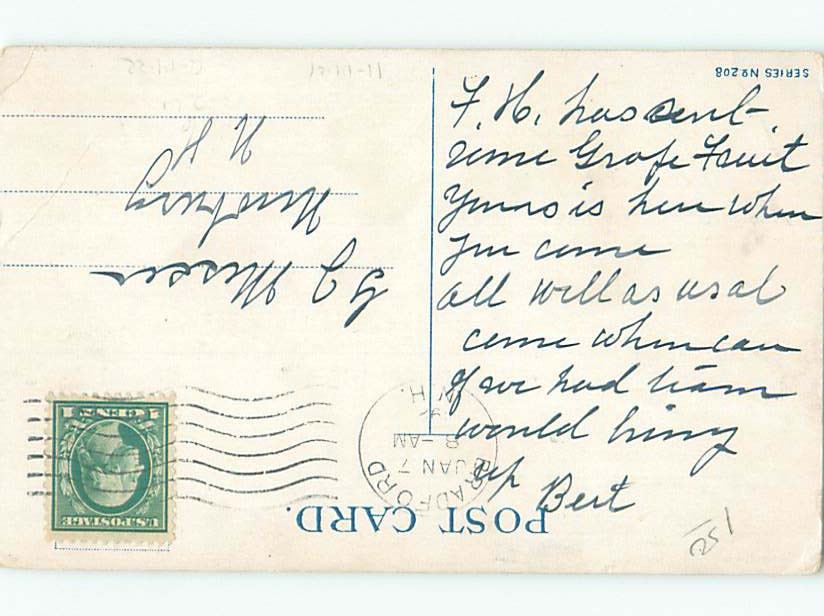 F. H. has sent
some Grape Fruit
Yours is here when
you come
all well as usal
come when can
if we had team
would bring
up
Bert
POST CARD.
SERIES No 208
G J Messer
Newbury
N H
BRADFORD
JAN 7
8-AM
N.H.
U.S. POSTAGE
1 CENT 1
251